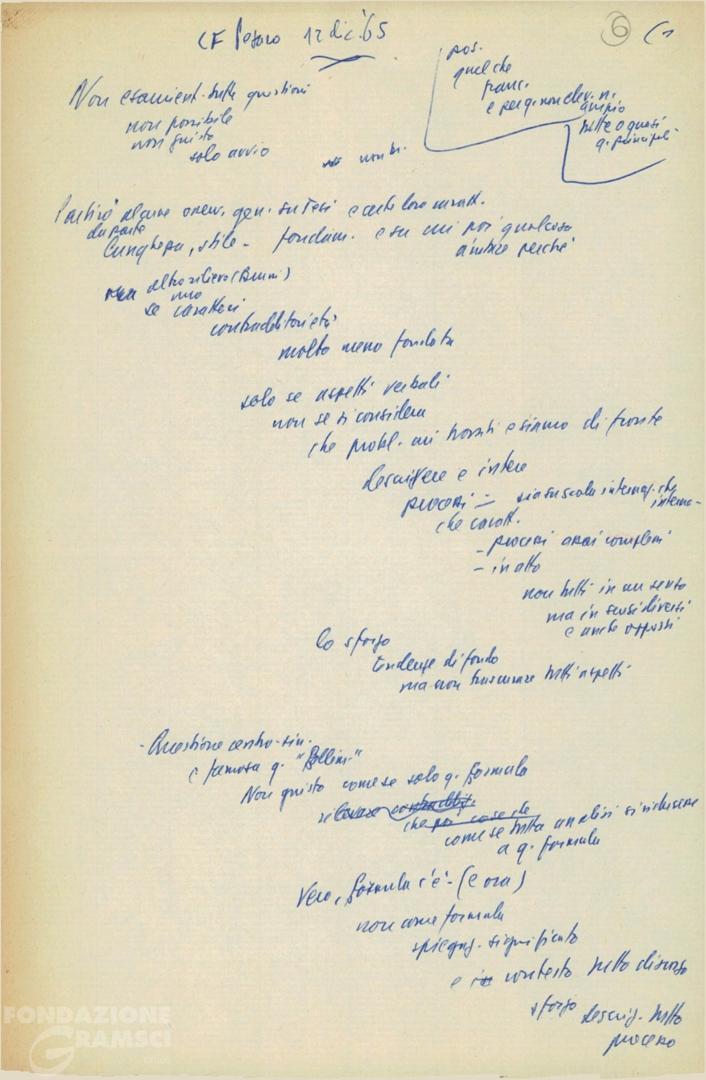 CF Pesaro 12 dic. '65
6
(1
pos.
qualche
franc.
e per q. non elev. n.
ampio
tutte o quasi
q. principali
Non esamient. tutte questioni
non possibile
non giusto
solo avvio
non
Partirò alcune osserv. gen. su tesi e certe loro caratt.
da parte
lunghezza, stile - fondam. e su cui poi qualcosa
anche perché
altro rilievo (Bruni)
mio
se caratteri
contraddittorietà
molto meno fondata
solo se aspetti verbali
non se si considera
che probl. cui trovati e siamo di fronte
descrivere e intere
processi - sia su scala internaz. che
interna -
che caratt.
- processi assai complessi
- in atto
non tutti in un senso
ma in sensi diversi
e anche opposti
lo sforzo
tendenze di fondo
ma non trascurare tutti aspetti
- Questione centro-sin.
e famosa q. "
Non giusto come se solo q. formula
rilevare
che poi cose che
come se tutta analisi si riducesse
a q. formula
Vero, formula c'è - (e ora)
non come formula
spiegaz. significato
e in contesto tutto discorso
sforzo descriv. tutto
processo
FONDAZIONE
GRAMSCI